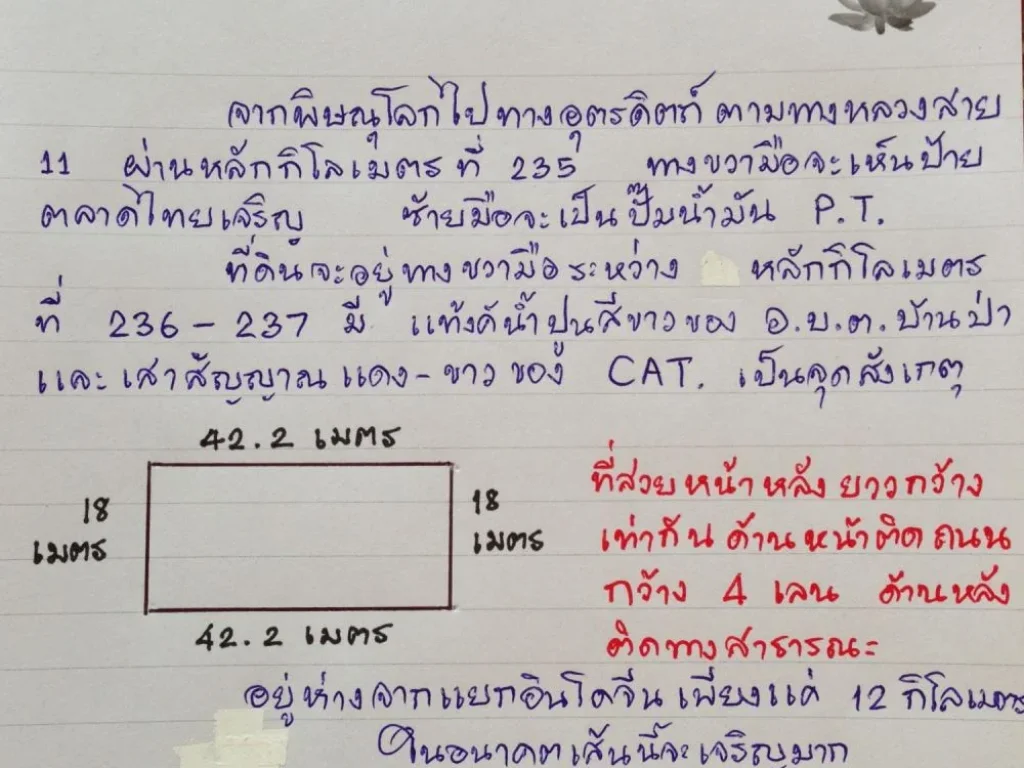 จากพิษณุโลกไปทางอุตรดิตถ์ ตามทางหลวงสาย
11 ผ่านหลักกิโลเมตรที่ 235 ทางขวามือจะเห็นป้าย
ตลาดไทยเจริญ ซ้ายมือจะเป็นปั๊มน้ำมัน P.T.
ที่ดินจะอยู่ทางขวามือระหว่าง หลักกิโลเมตร
ที่ 236-237 มี แท้งค์น้ำปูนสีขาวของ อ.บ.ต.บ้านป่า
และเสาสัญญาณแดง-ขาวของ CAT. เป็นจุดสังเกตุ
42.2 เมตร
18
เมตร
18
เมตร
42.2 เมตร
ที่สวยหน้าหลังยาวกว้าง
เท่ากัน ด้านหน้าติดถนน
กว้าง 4 เลน ด้านหลัง
ติดทางสาธารณะ
อยู่ห่างจากแยกอินโดจีนเพียงแค่ 12 กิโลเมตร
ในอนาคตเส้นนี้จะเจริญมาก